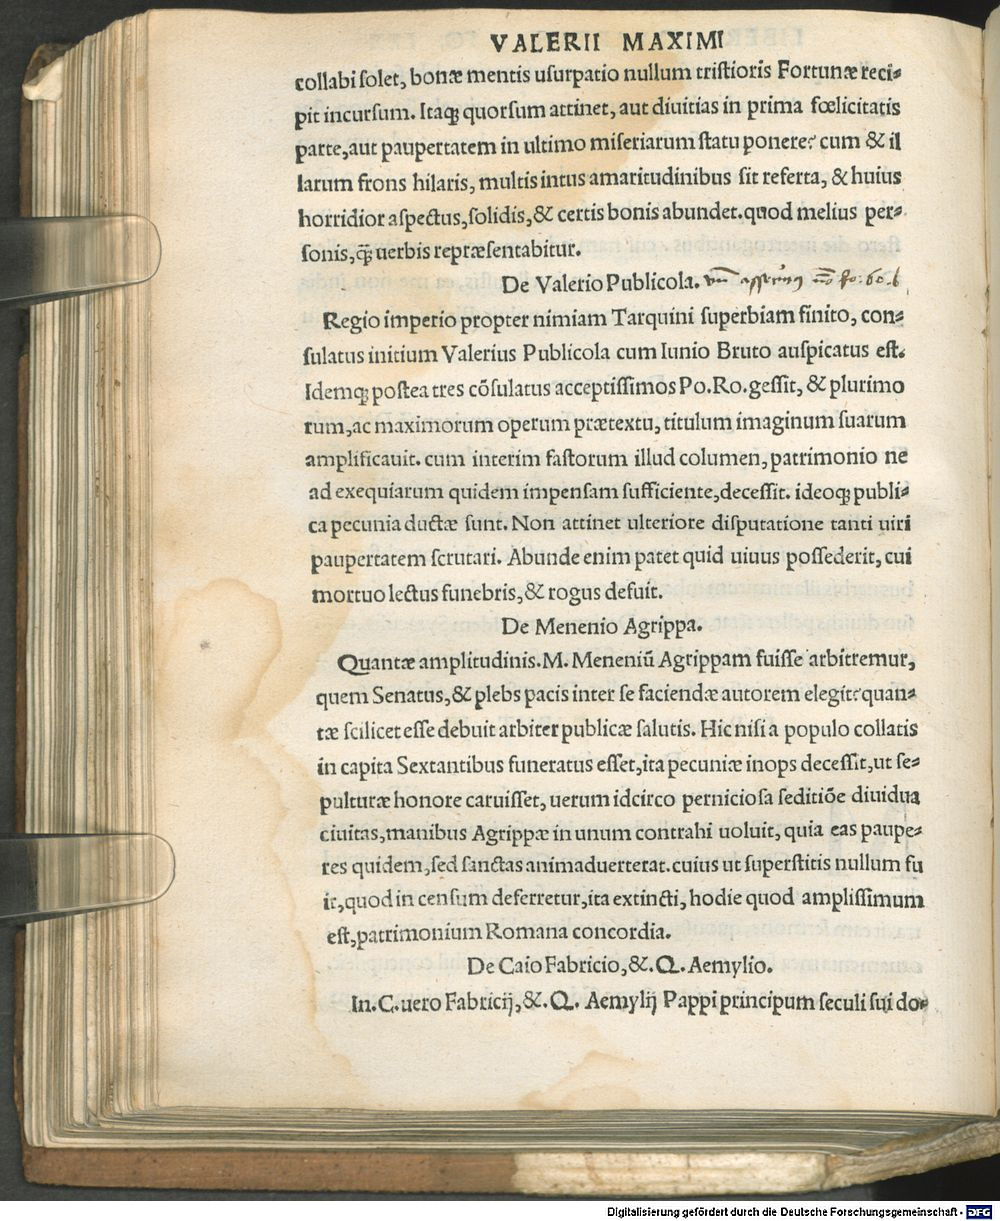 VALERII MAXIMI
collabi ſolet, bonæ mentis uſurpatio nullum triſtioris Fortunæ reci-
pit incurſum. Itaqꝫ quorſum attinet, aut diuitias in prima fœlicitatis
parte, aut paupertatem in ultimo miſeriarum ſtatu ponere? cum & il
larum frons hilaris, multis intus amaritudinibus ſit referta, & huius
horridior aſpectus, ſolidis, & certis bonis abundet. quod melius per-
ſonis, q̃ uerbis repræſentabitur.
De Valerio Publicola. fo: 60. b
Regio imperio propter nimiam Tarquini ſuperbiam finito, con-
ſulatus initium Valerius Publicola cum Iunio Bruto auſpicatus eſt.
Idemqꝫ poſtea tres cõſulatus acceptiſſimos Po. Ro. geſſit, & plurimo
rum, ac maximorum operum prætextu, titulum imaginum ſuarum
amplificauit. cum interim faſtorum illud columen, patrimonio ne
ad exequiarum quidem impenſam ſufficiente, deceſſit. ideoqꝫ publi-
ca pecunia ductæ ſunt. Non attinet ulteriore diſputatione tanti uiri
paupertatem ſcrutari. Abunde enim patet quid uiuus poſſederit, cui
mortuo lectus funebris, & rogus defuit.
De Menenio Agrippa.
Quantæ amplitudinis. M. Meneniũ Agrippam fuiſſe arbitremur,
quem Senatus, & plebs pacis inter ſe faciendæ autorem elegit? quan-
tæ ſcilicet eſſe debuit arbiter publicæ ſalutis. Hic niſi a populo collatis
in capita Sextantibus funeratus eſſet, ita pecuniæ inops deceſſit, ut ſe-
pulturæ honore caruiſſet, uerum idcirco pernicioſa ſeditiõe diuidua
ciuitas, manibus Agrippæ in unum contrahi uoluit, quia eas paupe-
res quidem, ſed ſanctas animaduerterat. cuius ut ſuperſtitis nullum fu
it, quod in cenſum deferretur, ita extincti, hodie quod ampliſſimum
eſt, patrimonium Romana concordia.
De Caio Fabricio, &. Q. Aemylio.
In. C. uero Fabricij, &. Q. Aemylij Pappi principum ſeculi ſui do-
Digitalisierung gefördert durch die Deutsche Forschungsgemeinschaft - DFG